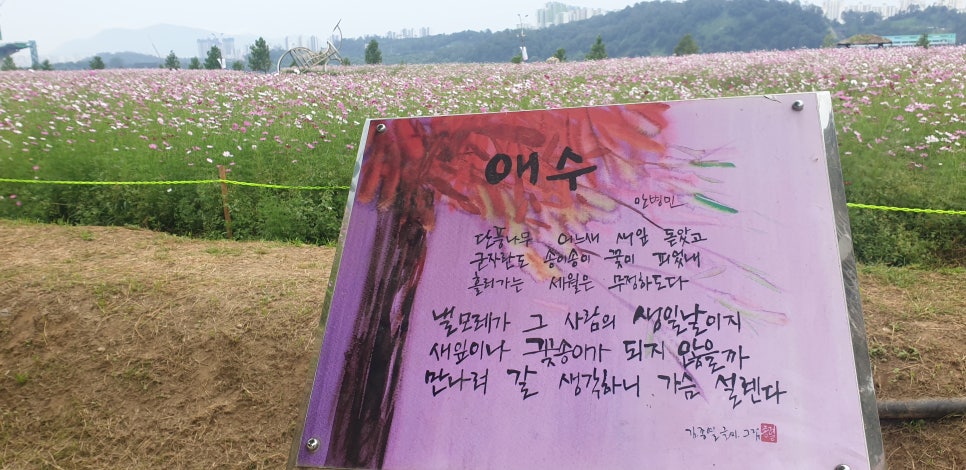 애수
안병민
단풍나무 어느새 새잎 돋았고
군자란도 송이송이 꽃이 피었네
흘러가는 세월은 무정하도다
낼모레가 그 사람의 생일날이지
새잎이나 꽃송이가 되지 않을까
만나러 갈 생각하니 가슴 설렌다
글씨.그림